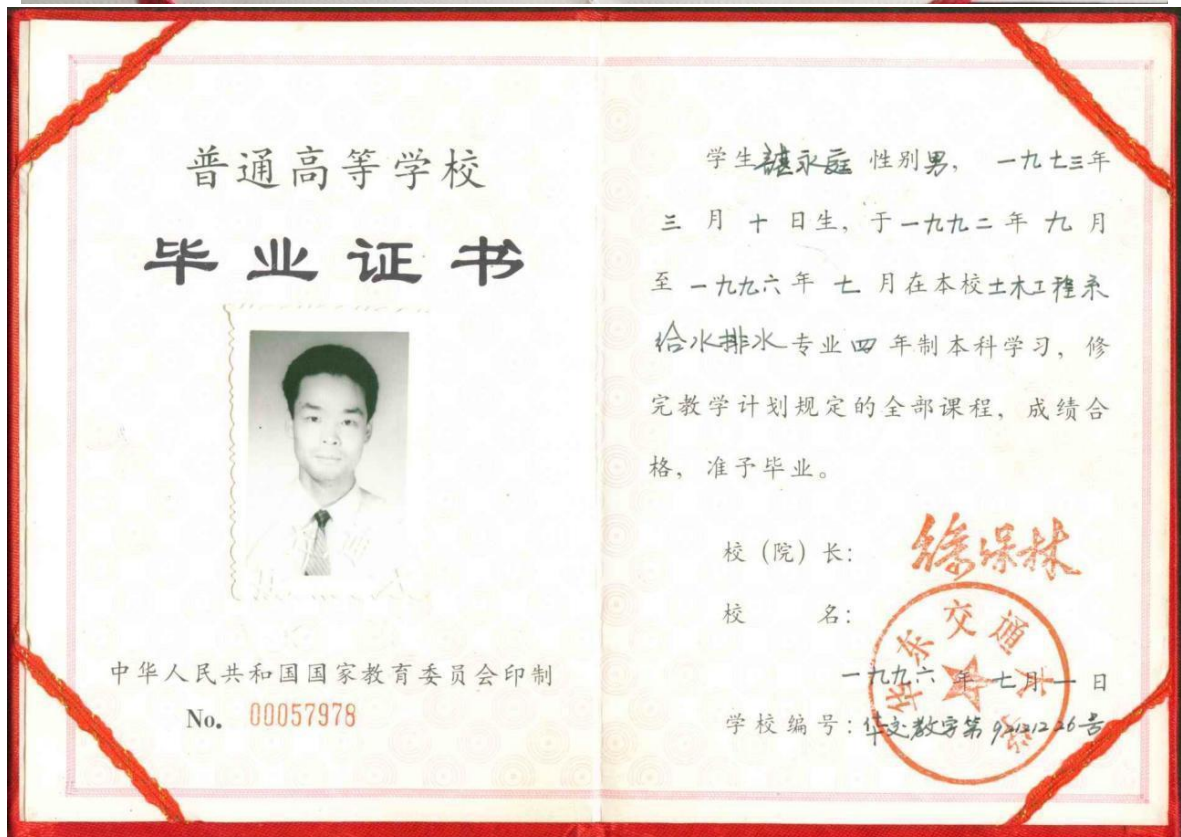 普通高等学校
毕业证书
中华人民共和国国家教育委员会印制
No. 00057978
学生谌永庭 性别男， 一九七三年
三月十日生，于一九九二年九月
至一九九六年七月在本校土木工程系
给水排水专业四年制本科学习，修
完教学计划规定的全部课程，成绩合
格，准予毕业。
校（院）长：
校 名：
华东交通大学
一九九六年七月一日
学校编号：华交教字第92121226号